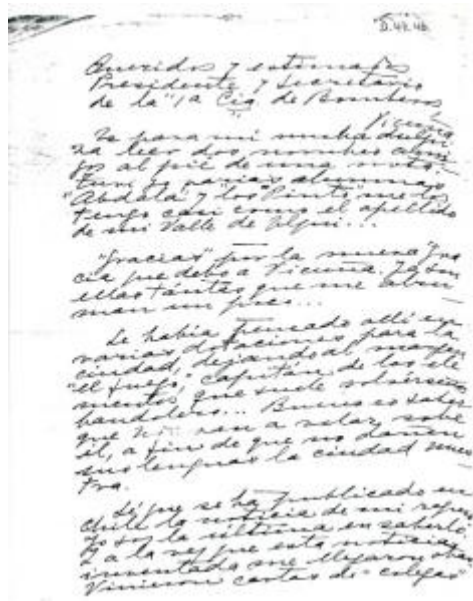 Queridos y estimados
Presidente y Secretario
de la "1a Cía. de Bomberos
Vicuña
Es para mi mucha dulzu
ra leer dos nombres ami
gos al pié de una nota.
Tuve yo varias alumnas
"Abdala" y "los Pinto" me los
tengo casi como el apellido
de mi Valle de Elqui...
"Gracias" por la nueva gra
cia que debo a Vicuña. Ya son
ellas tántas que me abru
man un poco...
Se había pensado allí en
varias dotaciones para la
ciudad, dejando al margen
"el fuego", capitán de los ele
mentos, que suele volvérsenos
bandolero... Bueno es saber
que van a velar sobre
él, a fin de que no dañen
sus lenguas la ciudad nues
tra.
Sé que se ha publicado en
Chile la noticia de mi
Yo soy la última en saberlo.
Y a la vez que esta noticia
inventada me llegaron otras
Vinieron cartas de "colegas"